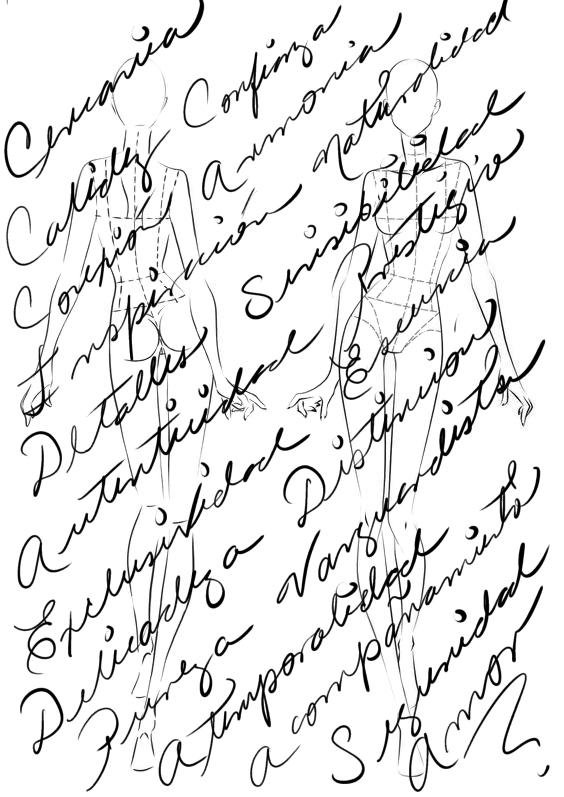 Cercanía
Confianza
Calidez
Armonía
Naturalidad
Conexión
Inspiración
Sensibilidad
Detalles
Prestigio
Autenticidad
Esencia
Exclusividad
Distinción
Delicadeza
Vanguardista
Pureza
Atemporalidad
acompañamiento
Seguridad
Amor